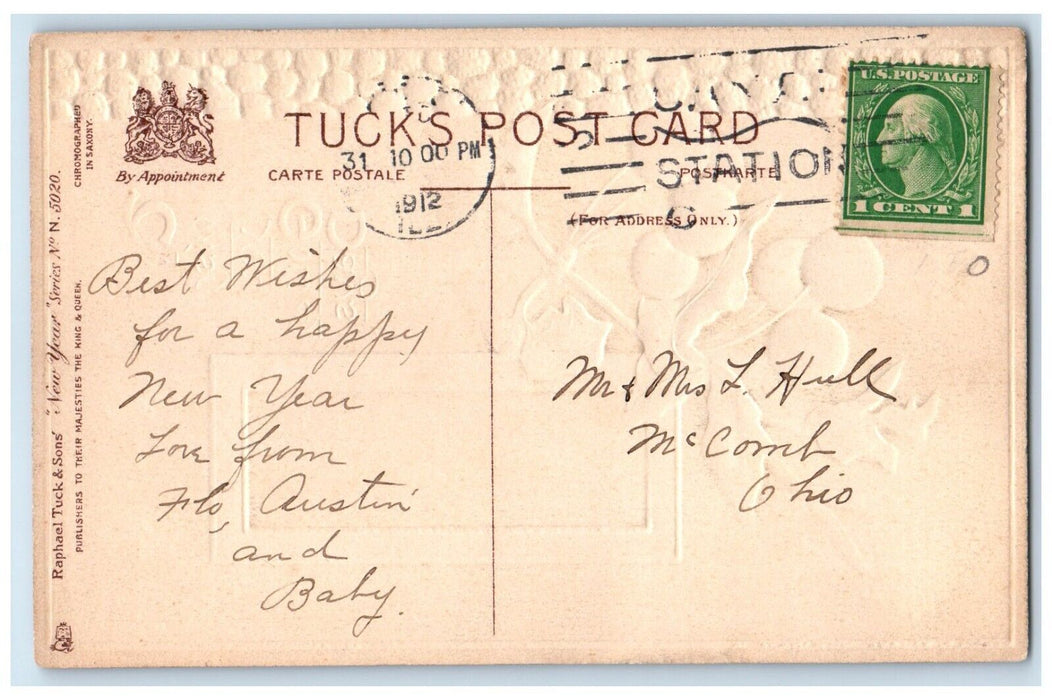 TUCK'S POST CARD
CARTE POSTALE
POSTKARTE
(FOR ADDRESS ONLY.)
By Appointment
CHROMOGRAPHED
IN SAXONY.
Raphael Tuck & Sons' "New Year" Series No N. 5020.
PUBLISHERS TO THEIR MAJESTIES THE KING & QUEEN.
31 10 00 PM
1912
ILL
STATION
C
U.S. POSTAGE
1 CENT 1
Best Wishes
for a happy
New Year
Love from
Flo, Austin
and
Baby.
Mr & Mrs L. Hull
McComb
Ohio